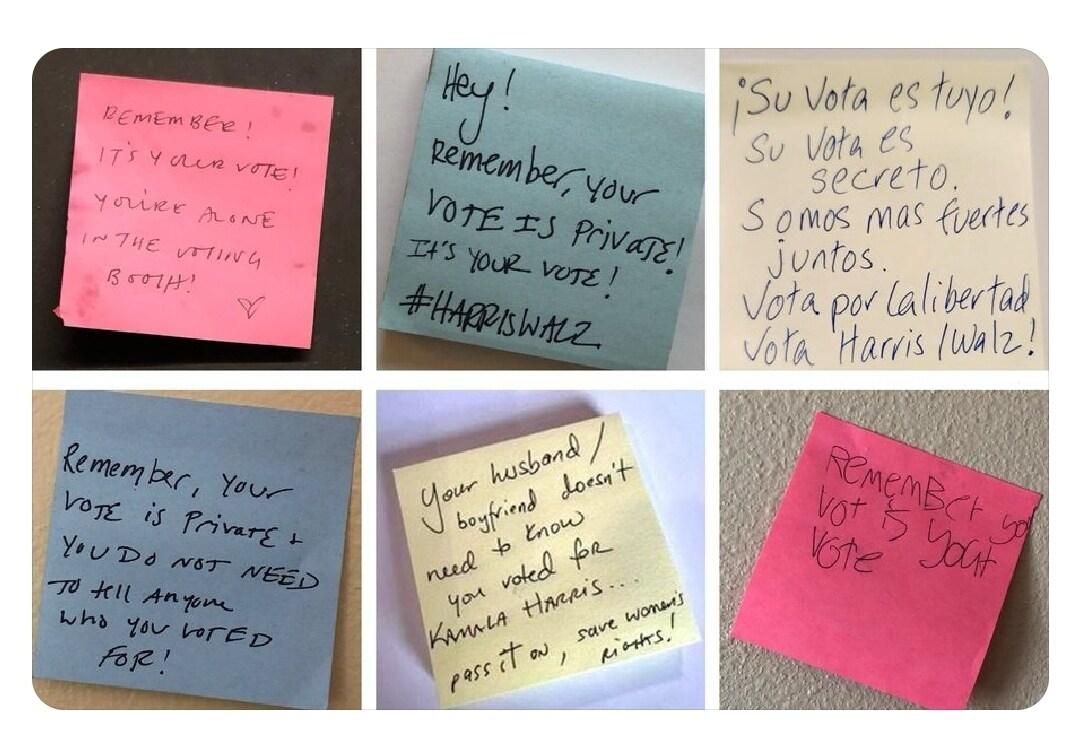 REMEMBER!
IT'S YOUR VOTE!
YOU'RE ALONE
IN THE VOTING
BOOTH!
Hey!
Remember, your
VOTE IS PrivaTE!
IT'S YOUR VOTE!
#HARRISWALZ
¡Su Vota es tuyo!
Su vota es
secreto.
Somos mas fuertes
juntos.
Vota por la libertad
Vota Harris/Walz!
Remember, your
VOTE is PrivaTE +
YOU DO NOT NEED
TO tell Anyone
who you VOTED
FOR!
Your husband/
boyfriend doesn't
need to know
you voted for
KAMALA HARRIS...
pass it on, save women's
rights!
REMEMBEr yor
Vot is your
Vote